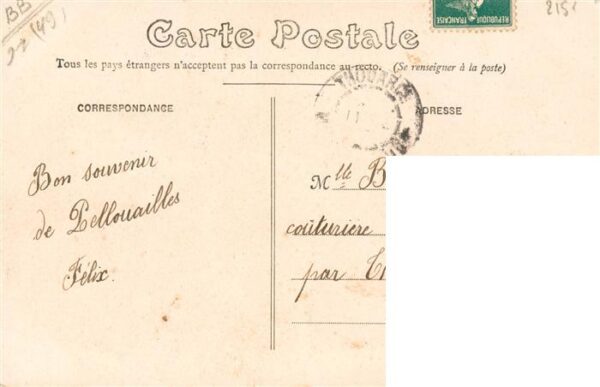 BB
(49)
2152
REPUBLIQUE FRANÇAISE
Carte Postale
Tous les pays étrangers n'acceptent pas la correspondance au recto. (Se renseigner à la poste)
CORRESPONDANCE
ADRESSE
Bon souvenir
de Pellouailles
Félix.
Mlle B
couturière
par